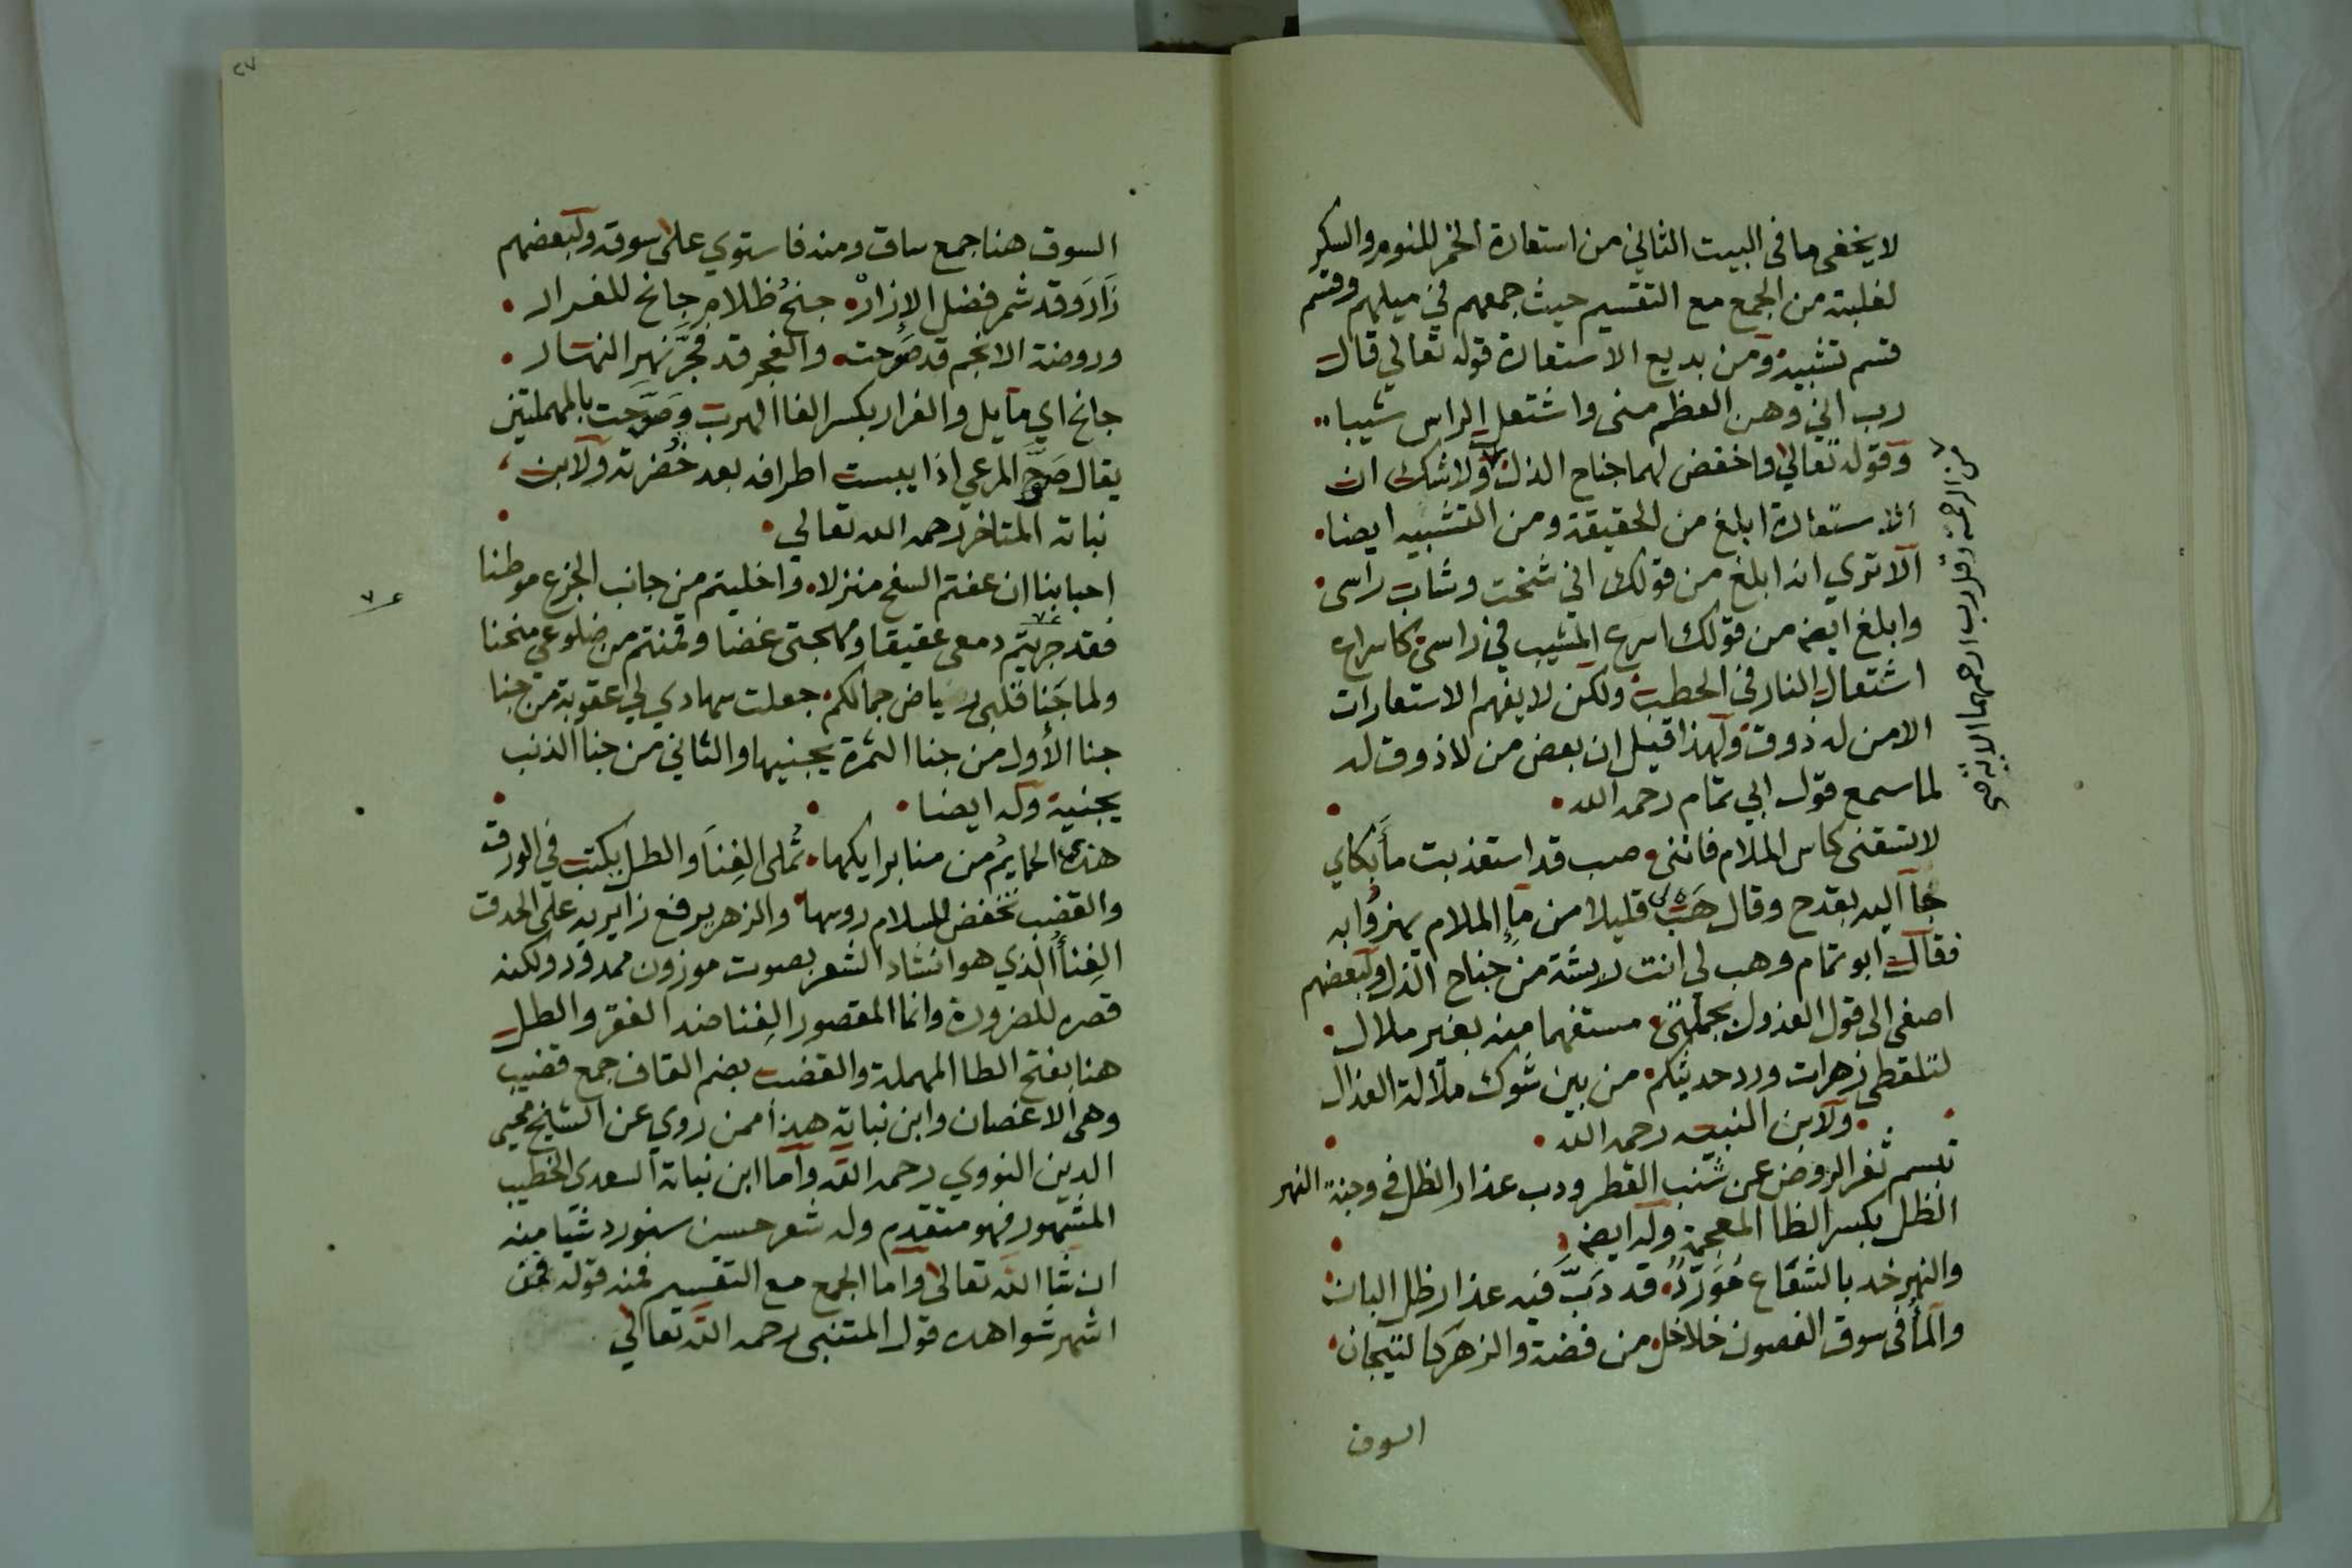 لا يخفى ما فى البيت الثاني من استعارة الخمر للنوم والسكر
لغلبته من الجمع مع التقسيم حيث جمعهم في ميلهم وقسم
قسم تشبيه ومن بديع الاستعارة قوله تعالي قال
رب اني وهن العظم منى واشتعل الراس شيبا
وقوله تعالي واخفض لهما جناح الذل ولا شك ان
من الرحمة وقل رب ارحمهما الاية
الاستعارة ابلغ من الحقيقة ومن التشبيه ايضا
الا تري انه ابلغ من قولك اني شخت وشاب راسى
وابلغ ايضه من قولك اسرع المشيب في راسى كاسراع
اشتعال النار فى الحطب ولكن لا يفهم الاستعارات
الا من له ذوق ولهذا قيل ان بعض من لا ذوق له
لما سمع قول ابي تمام رحمه الله
لا تسقنى كاس الملام فاننى صب قد استعذبت ما بكاي
جا اليه بقدح وقال هب لى قليلا من ما الملام يهزؤا به
فقال ابو تمام وهب لى انت ريشة من جناح الذل ولبعضهم
اصغى الى قول العذول بجملتى مستفهما منه بغير ملال
لتلقطى زهرات ورد حديثكم من بين شوك ملالة العذال
ولابن النبيه رحمه الله
تبسم ثغر الروض عن شنب القطر ودب عذار الظل فى وجنة النهر
الظل بكسر الظا المعجمة وله ايضه
والنهر خد بالشعاع مورد قد دب فيه عذار ظل البان
والما فى سوق الغصون خلاخل من فضة والزهر كالتيجان
السوق
٢٧
السوق هنا جمع ساق ومنه فاستوي على سوقه ولبعضهم
زار وقد شمر فضل الازار جنح ظلام جانح للفرار
وروضة الانجم قد صوحت والفجر قد فجر نهر النهار
جانح اي مايل والفرار بكسر الفا الهرب وصوحت بالمهملتين
يقال صوح المرعي اذا يبست اطرافه بعد خضرته ولابن
نباتة المتاخر رحمه الله تعالي
احبابنا ان عفتم السفح منزلا واخليتم من جانب الجزع موطنا
فقد جريتم دمعى عقيقا ومهجتى غضا وقمنتم من ضلوعي منحنا
ولما جنا قلبى رياض جمالكم جعلت سهادي لي عقوبة من جنا
جنا الأول من جنا الثمرة يجنيها والثاني من جنا الذنب
يجنيه وله ايضا
هذى الحمايم من منابر ايكها تملى الغنا والطل يكتب في الورق
والقضب تخفض للسلام روسها والزهر يرفع زايريه على الحدق
الغنأ الذي هو انشاد الشعر بصوت موزون ممدود ولكنه
قصره للضرورة وانما المقصور الغنا ضد الفقر والطل
هنا بفتح الطا المهملة والقضب بضم القاف جمع قضيب
وهى الاغصان وابن نباتة هذا ممن روي عن الشيخ محيى
الدين النووي رحمه الله واما ابن نباتة السعدى الخطيب
المشهور فهو متقدم وله شعر حسن سنورد شيا منه
ان شا الله تعالى واما الجمع مع التقسيم فمنه قوله فمن
اشهر شواهده قول المتنبى رحمه الله تعالي